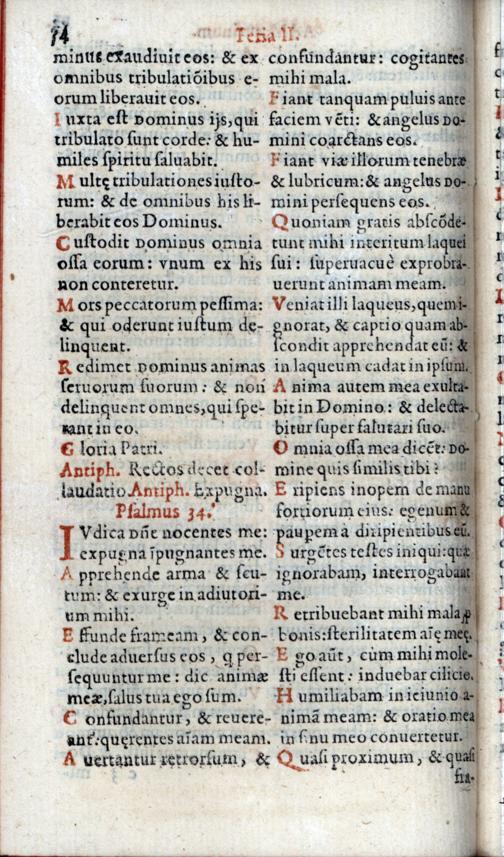 34
Feria II.
minus exaudiuit eos: & ex
omnibus tribulatiõibus e-
orum liberauit eos.
Iuxta est Dominus ijs, qui
tribulato sunt corde: & hu-
miles spiritu saluabit.
Multę tribulationes iusto-
rum: & de omnibus his li-
berabit eos Dominus.
Custodit Dominus omnia
ossa eorum: vnum ex his
non conteretur.
Mors peccatorum pessima:
& qui oderunt iustum de-
linquent.
Redimet Dominus animas
seruorum suorum: & non
delinquent omnes, qui spe-
rant in eo.
Gloria Patri.
Antiph. Rectos decet col-
laudatio Antiph. Expugna.
Psalmus 34.
IVdica Dñe nocentes me:
expugna ĩpugnantes me.
Apprehende arma & scu-
tum: & exurge in adiutori-
um mihi.
Effunde frameam, & con-
clude aduersus eos, q per-
sequuntur me: dic animæ
meæ, salus tua ego sum.
Confundantur, & reuere-
ant: quęrentes aĩam meam.
Auertantur retrorsum, &
confundantur: cogitantes
mihi mala.
Fiant tanquam puluis ante
faciem vẽti: & angelus Do-
mini coarctans eos.
Fiant viæ illorum tenebræ
& lubricum: & angelus Do-
mini persequens eos.
Quoniam gratis abscõde-
tunt mihi interitum laquei
sui: superuacuè exprobra-
uerunt animam meam.
Veniat illi laqueus, quem i-
gnorat, & captio quam ab-
scondit apprehendat eũ: &
in laqueum cadat in ipsum.
Anima autem mea exulta-
bit in Domino: & delecta-
bitur super salutari suo.
Omnia ossa mea dicẽt: Do-
mine quis similis tibi?
Eripiens inopem de manu
fortiorum eius: egenum &
paupem à diripientibus eũ.
Surgẽtes testes iniqui: quæ
ignorabam, interrogabant
me.
Retribuebant mihi mala ꝓ
bonis: sterilitatem aĩę meę.
Ego aũt, cùm mihi mole-
sti essent: induebar cilicio.
Humiliabam in ieiunio a-
nimã meam: & oratio mea
in sinu meo conuertetur.
Quasi proximum, & quasi
fra-